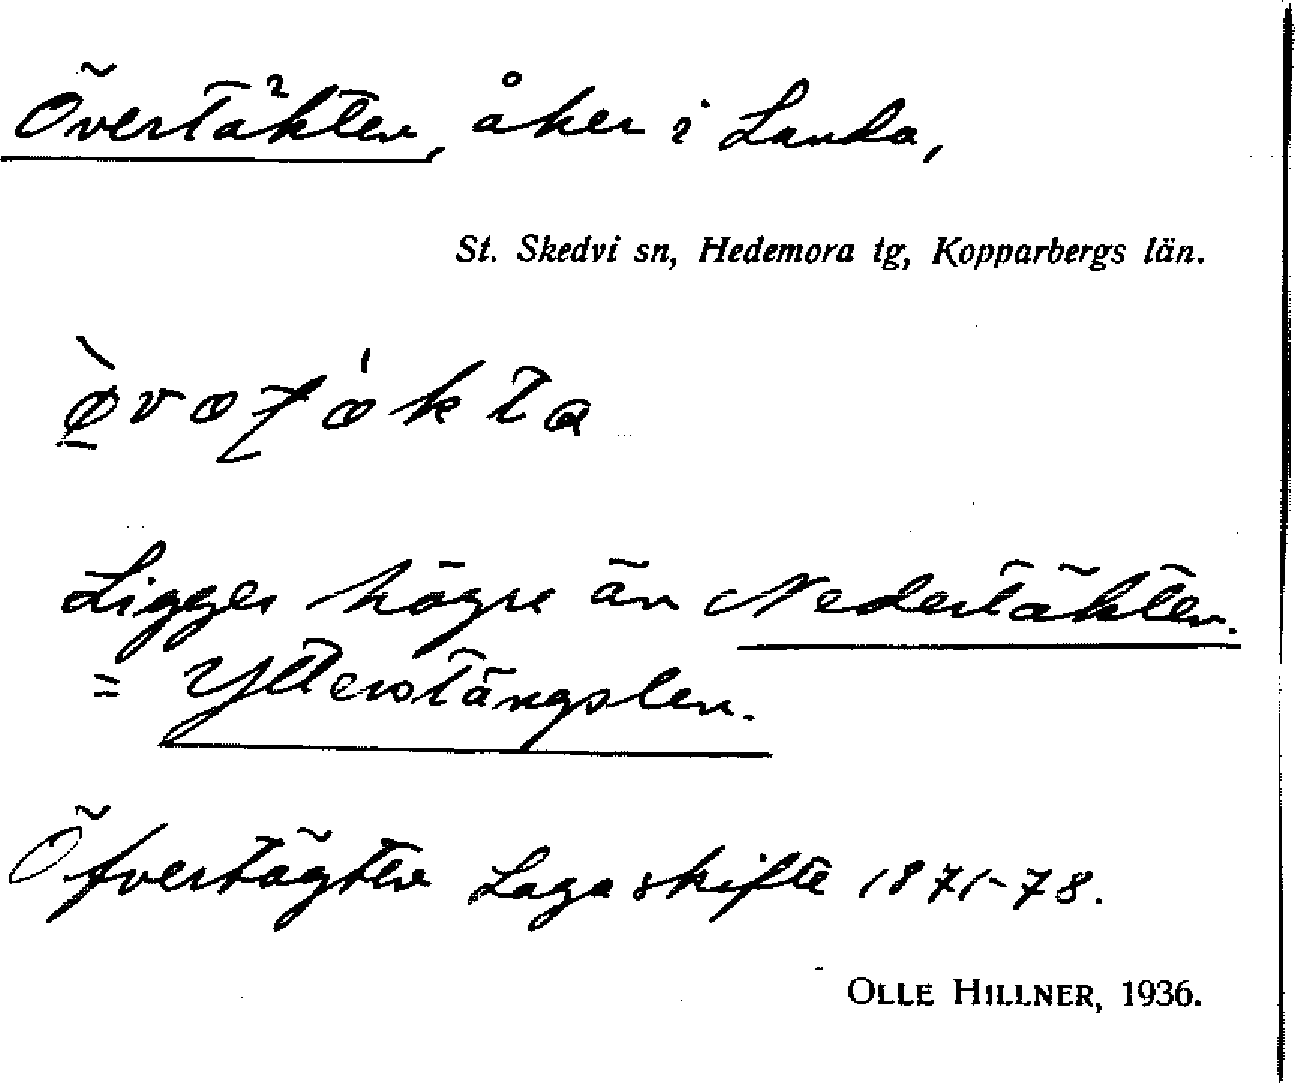 Övertäkten, åker i Landa,
St. Skedvi sn, Hedemora tg, Kopparbergs län.
Ligger högre än Nedertäkten.
= Ytterstängslen.
Öfvertägten Laga skifte 1871-78.
OLLE HILLNER, 1936.